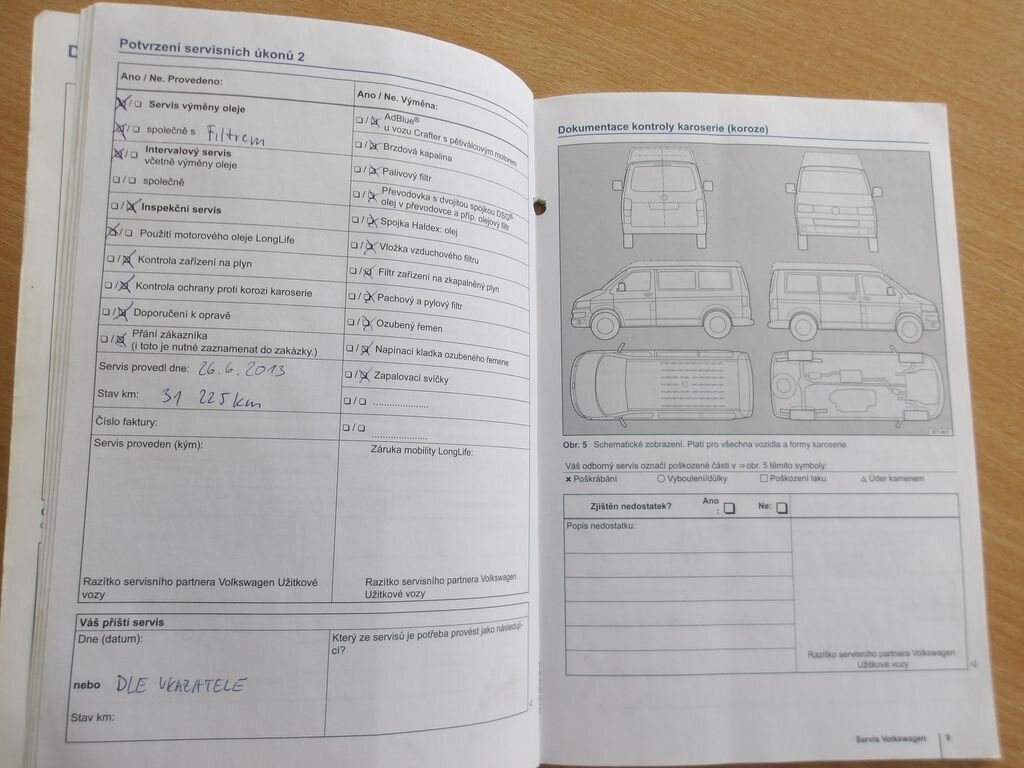 Potvrzení servisních úkonů 2
Ano / Ne. Provedeno:
Servis výměny oleje
společně s Filtrem
Intervalový servis
včetně výměny oleje
společně
Inspekční servis
Použití motorového oleje LongLife
Kontrola zařízení na plyn
Kontrola ochrany proti korozi karoserie
Doporučení k opravě
Přání zákazníka
(i toto je nutné zaznamenat do zakázky.)
Servis provedl dne: 26.6.2013
Stav km: 31 225km
Číslo faktury:
Servis proveden (kým):
Razítko servisního partnera Volkswagen Užitkové
vozy
Ano / Ne. Výměna:
AdBlue®
u vozu Crafter s pětiválcovým motorem
Brzdová kapalina
Palivový filtr
Převodovka s dvojitou spojkou DSG®
olej v převodovce a příp. olejový filtr
Spojka Haldex: olej
Vložka vzduchového filtru
Filtr zařízení na zkapalněný plyn
Pachový a pylový filtr
Ozubený řemen
Napínací kladka ozubeného řemene
Zapalovací svíčky
....................
....................
Záruka mobility LongLife:
Razítko servisního partnera Volkswagen
Užitkové vozy
Váš příští servis
Dne (datum):
nebo DLE UKAZATELE
Stav km:
Který ze servisů je potřeba provést jako následují-
cí?
Dokumentace kontroly karoserie (koroze)
Obr. 5 Schematické zobrazení. Platí pro všechna vozidla a formy karoserie.
Váš odborný servis označí poškozené části v ⇒obr. 5 těmito symboly:
Poškrábání Vyboulení/důlky Poškození laku Úder kamenem
Zjištěn nedostatek? Ano
: Ne:
Popis nedostatku:
Razítko servisního partnera Volkswagen
Užitkové vozy
Servis Volkswagen 9